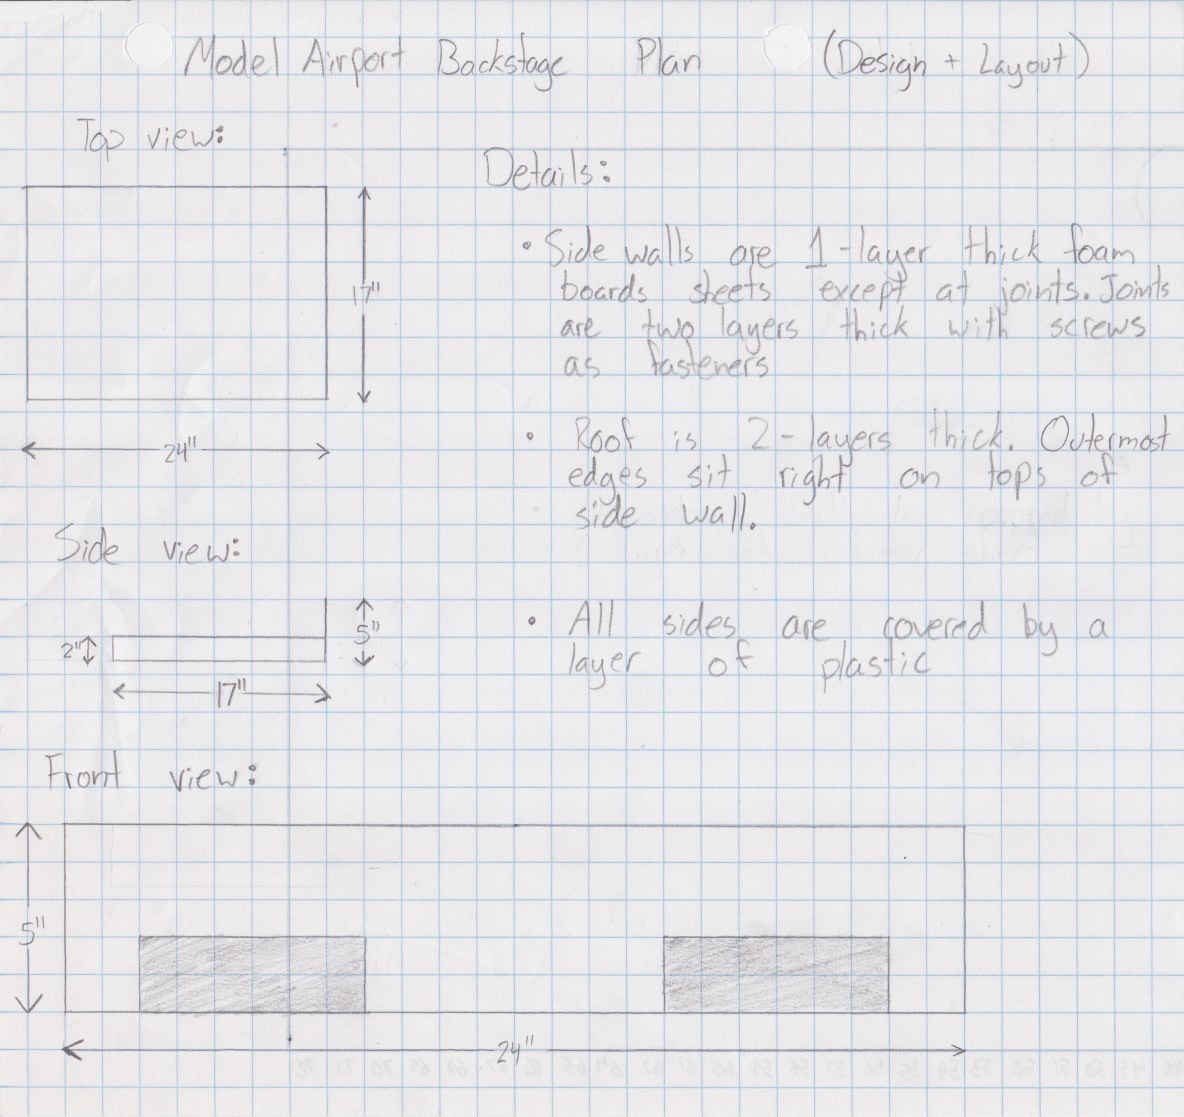 Model Airport Backstage Plan (Design + Layout)
Top view:
17"
24"
Details:
• Side walls are 1-layer thick foam
boards sheets except at joints. Joints
are two layers thick with screws
as fasteners
• Roof is 2-layers thick. Outermost
edges sit right on tops of
side wall.
• All sides are covered by a
layer of plastic
Side view:
2"
5"
17"
Front view:
5"
24"